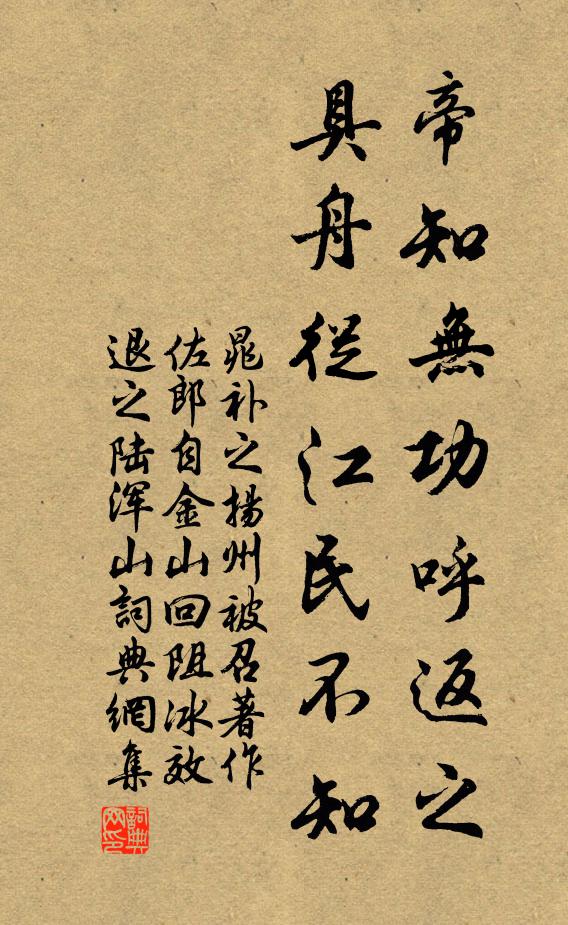 帝知無功呼返之
具舟從江民不知
晁补之揚州被召著作
佐郎自金山回阻冰效
退之陆浑山詞典網集
詞典网印